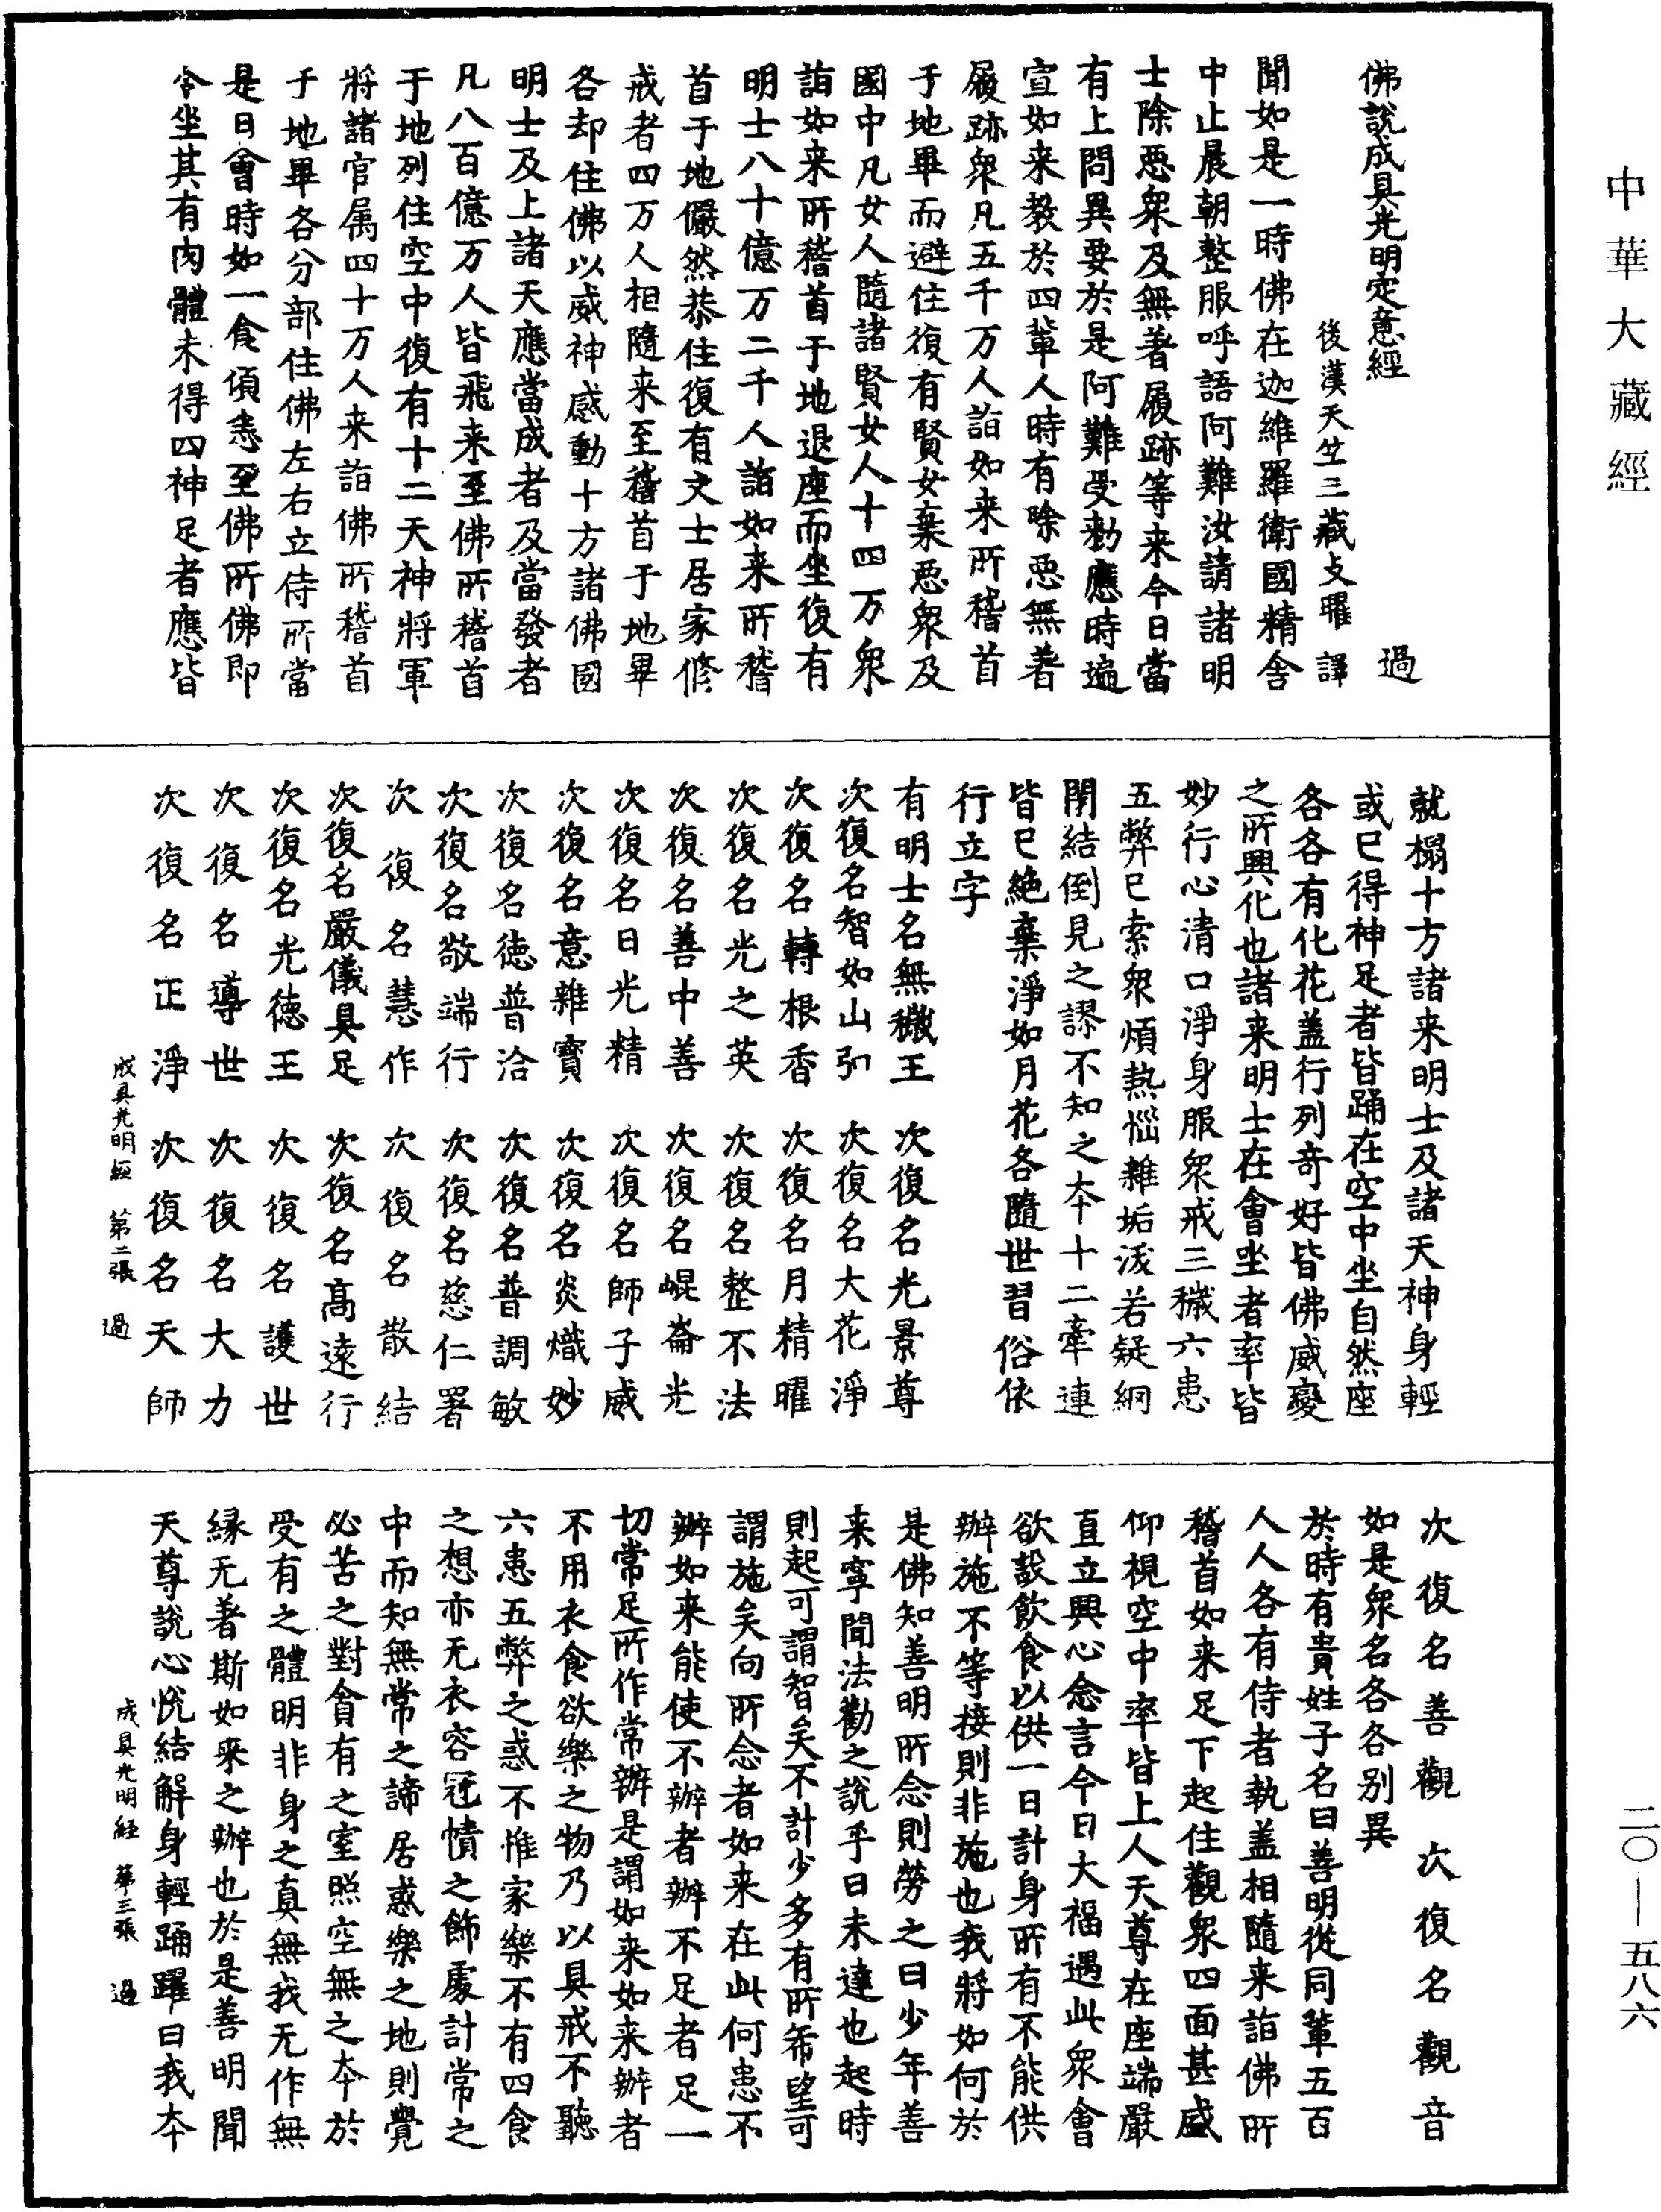 中華大藏經
佛說成具光明定意經　過
後漢天竺三藏支曜　譯
聞如是一時佛在迦維羅衛國精舍
中止晨朝整服呼語阿難汝請諸明
士除惡衆及無著履跡等来今日當
有上問異要於是阿難受勑應時遍
宣如来教於四輩人時有除惡無著
履跡衆凡五千万人詣如来所稽首
于地畢而避住復有賢女棄惡衆及
國中凡女人隨諸賢女人十四万衆
詣如来所稽首于地退座而坐復有
明士八十億万二千人詣如来所稽
首于地儼然恭住復有文士居家修
戒者四万人相隨来至稽首于地畢
各却住佛以威神感動十方諸佛國
明士及上諸天應當成者及當發者
凡八百億万人皆飛来至佛所稽首
于地列住空中復有十二天神將軍
將諸官属四十万人来詣佛所稽首
于地畢各分部住佛左右立侍所當
是日會時如一食頃悉至佛所佛即
令坐其有肉體未得四神足者應皆
就榻十方諸来明士及諸天神身輕
或已得神足者皆踊在空中坐自然座
各各有化花盖行列奇好皆佛威變
之所興化也諸来明士在會坐者率皆
妙行心清口淨身服衆戒三穢六患
五弊已索衆煩熱惱雜垢湲若疑網
閈結倒見之謬不知之本十二牽連
皆已絶棄淨如月花各隨世習俗依
行立字
有明士名無穢王　次復名光景尊
次復名智如山弘　次復名大花淨
次復名轉根香　次復名月精曜
次復名光之英　次復名整不法
次復名善中善　次復名崐崙光
次復名日光精　次復名師子威
次復名意雜寶　次復名炎熾妙
次復名德普洽　次復名普調敏
次復名敬端行　次復名慈仁署
次復名慧作　次復名散結
次復名嚴儀具足　次復名高遠行
次復名光德王　次復名護世
次復名導世　次復名大力
次復名正淨　次復名天師
成具光明經　第二張　過
次復名善觀　次復名觀音
如是衆名各各别異
於時有貴姓子名曰善明從同輩五百
人人各有侍者執盖相隨来詣佛所
稽首如来足下起住觀衆四面甚盛
仰視空中率皆上人天尊在座端嚴
直立興心念言今日大福遇此衆會
欲設飲食以供一日計身所有不能供
辦施不等接則非施也我將如何於
是佛知善明所念則勞之曰少年善
来寧聞法勸之說乎曰未達也起時
則起可謂智矣不計少多有所希望可
謂施矣向所念者如来在此何患不
辦如来能使不辦者辦不足者足一
切常足所作常辦是謂如来如来辦者
不用衣食欲樂之物乃以具戒不聽
六患五弊之惑不惟家樂不有四食
之想亦无衣容冠幘之飾處計常之
中而知無常之諦居惑樂之地則覺
必苦之對貪有之室照空無之本於
受有之體明非身之真無我无作無
緣无著斯如来之辦也於是善明聞
天尊說心悅結解身輕踊躍曰我本
成具光明経　第三張　過
二〇—五八六